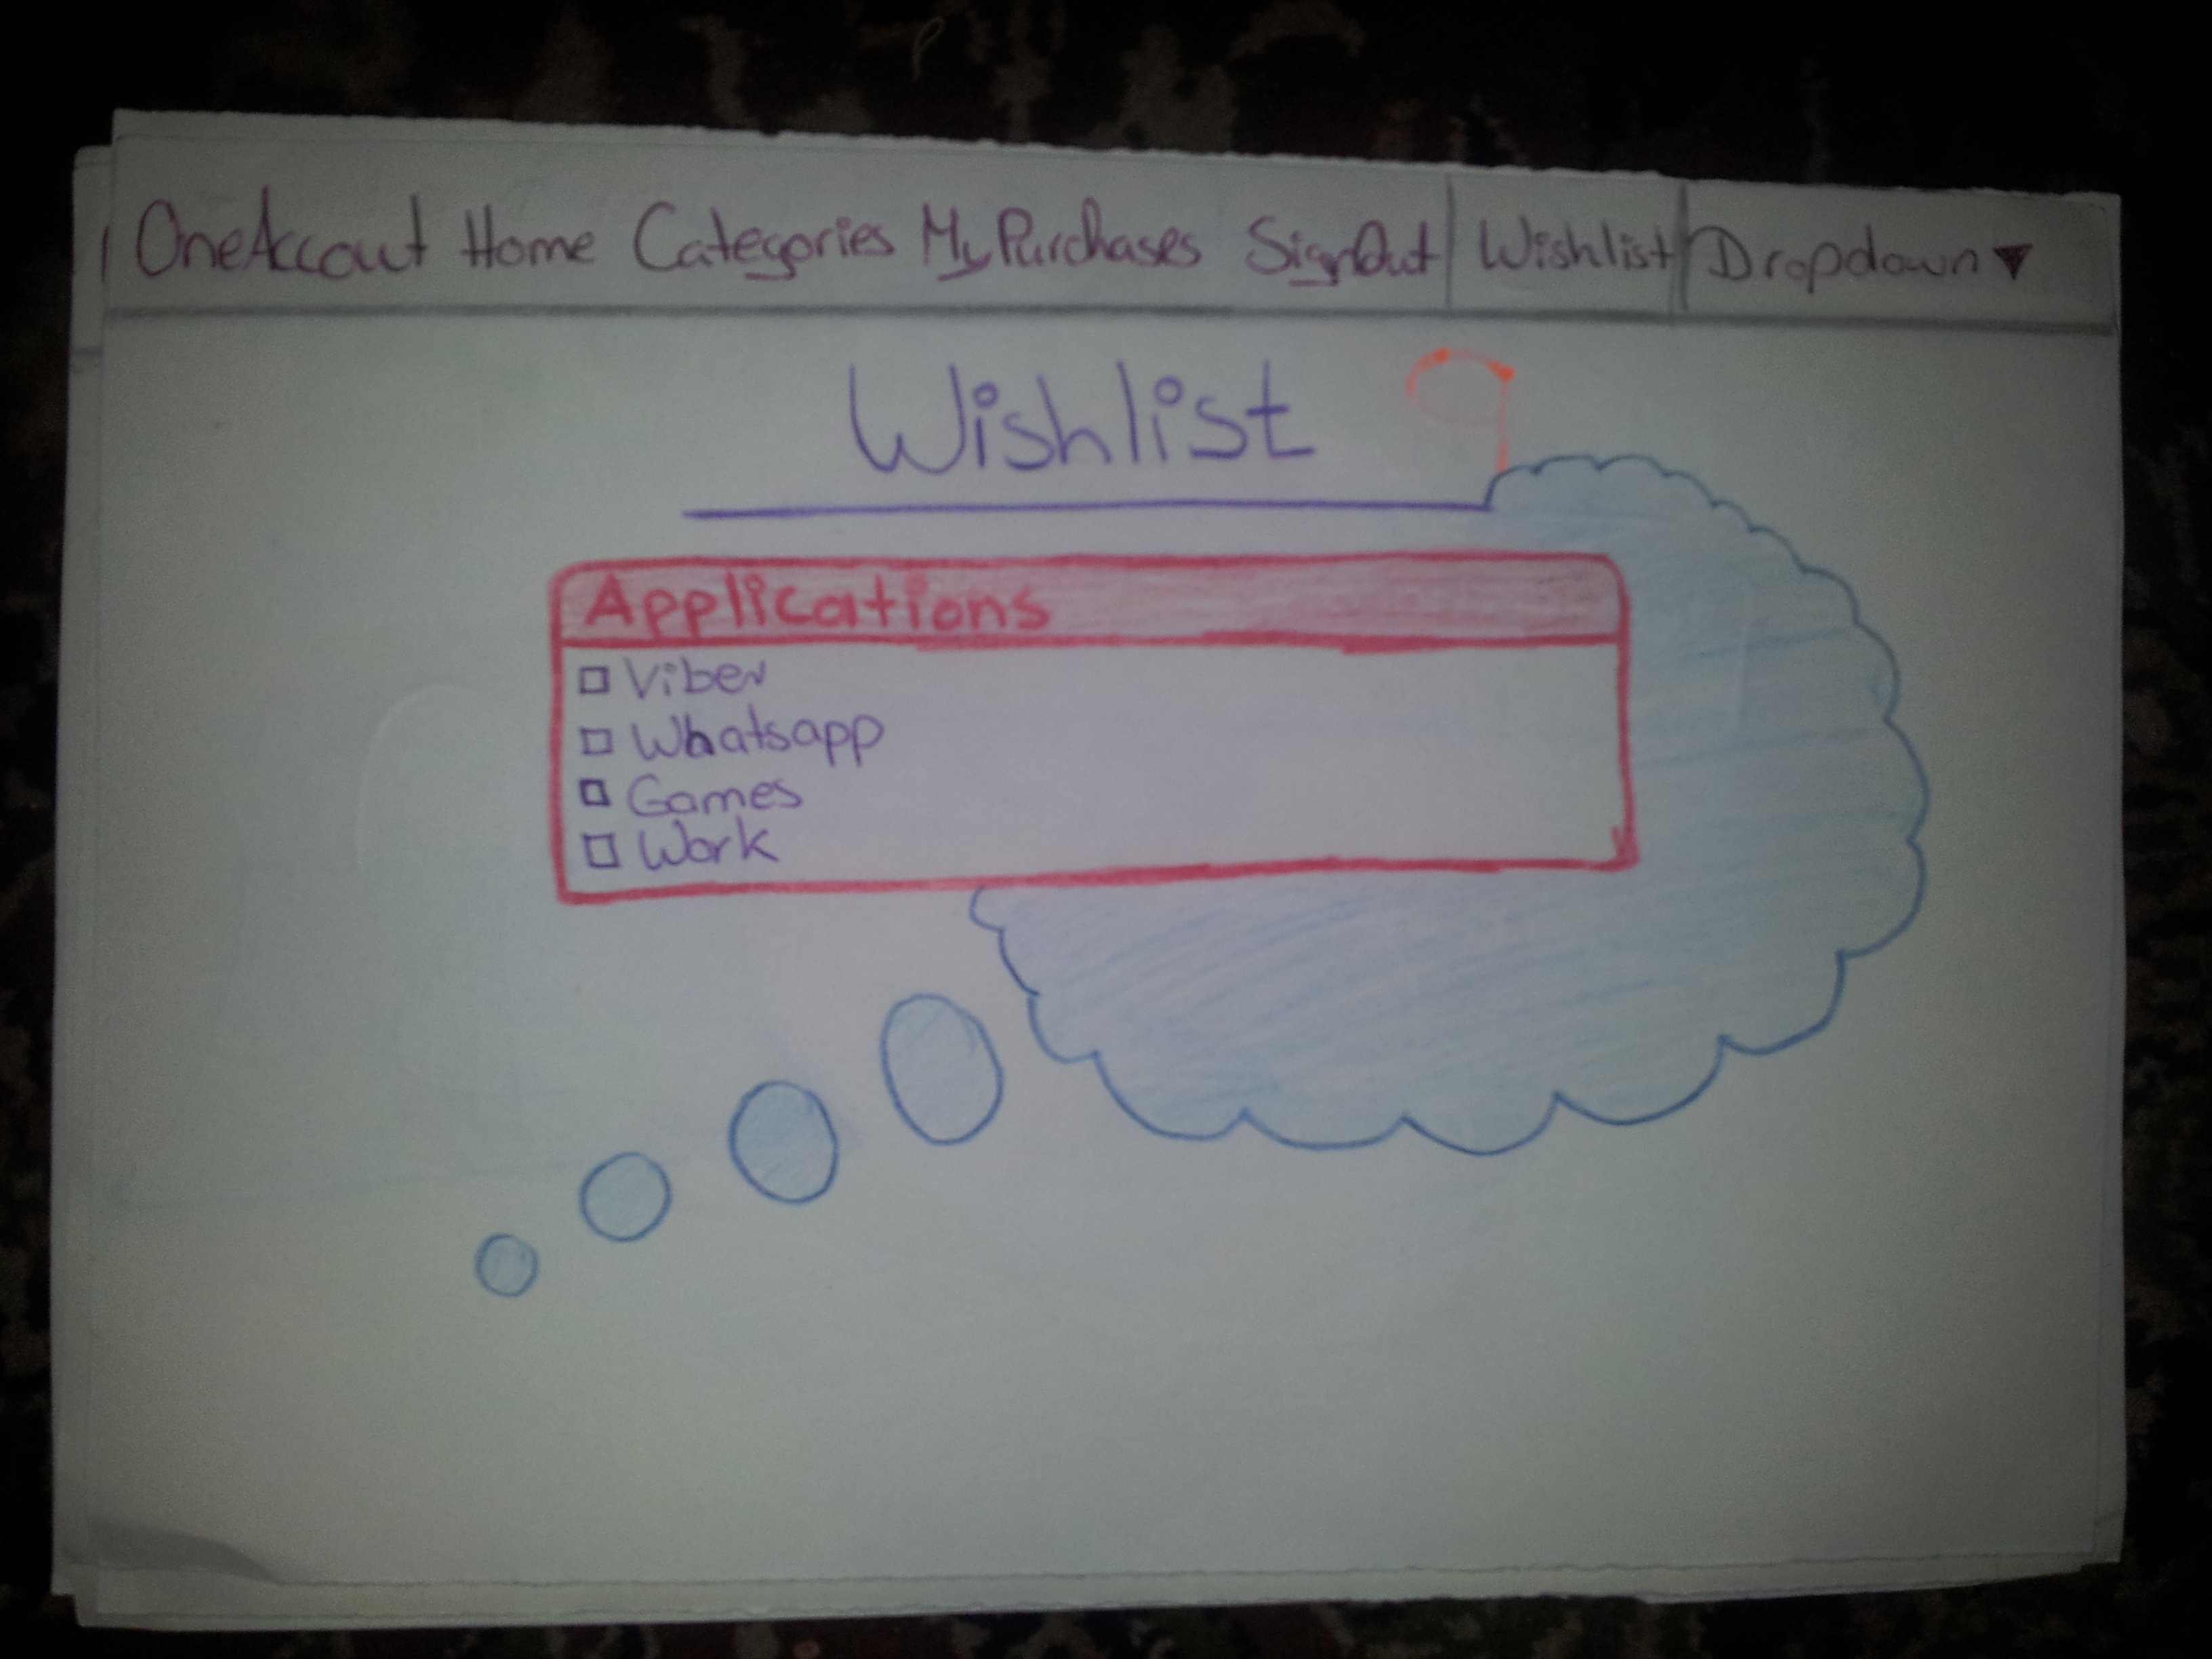 OneAccout Home Categories My Purchases Signout Wishlist Dropdown ▼
Wishlist
Applications
Viber
Whatsapp
Games
Work